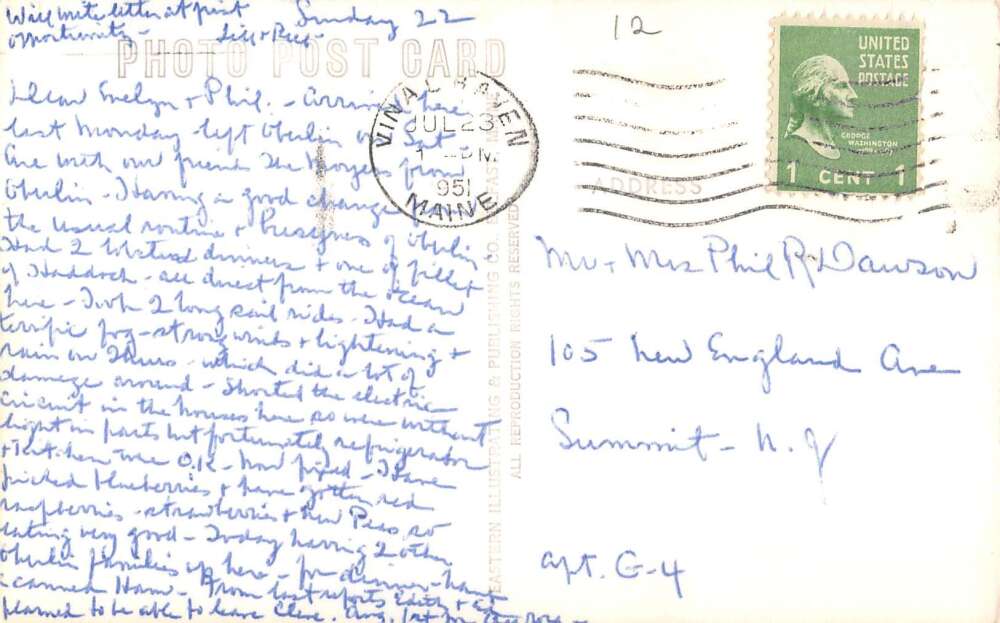 Will write letter at first Sunday 22
opportunity -
PHOTO POST CARD
12
Dear Evelyn & Phil. - Arrived here
last Monday left Oberlin on Sat -
with our friends the from
Oberlin - Having a good change
the usual routine & of Oberlin
Had 2 lobster dinners & one of fillet
of Haddock - all direct from the ocean
here - Took 2 long sail rides - Had a
terrific fog - strong winds & lightening &
rain on Thurs - which did a lot of
damage around - Shorted the electric
circuit in the houses here so were without
light in parts but fortunately refrigerator
& Kitchen were O.K. - Now fixed - Have
picked blueberries & have gotten red
raspberries - strawberries & new Peas so
eating very good - Today having 2 other
Oberlin families up here - for dinner - have
a canned Ham - From last reports Edith & Ed
planned to be able to leave Cleve. Aug. 1st
VINALHAVEN
JUL 23
1 - PM
1951
MAINE
UNITED
STATES
POSTAGE
GEORGE
WASHINGTON
1 CENT 1
ADDRESS
EASTERN ILLUSTRATING & PUBLISHING CO. BELFAST, MAINE
ALL REPRODUCTION RIGHTS RESERVED
Mr & Mrs Phil R Dawson
105 New England Ave
Summit - N. J
apt. G-4